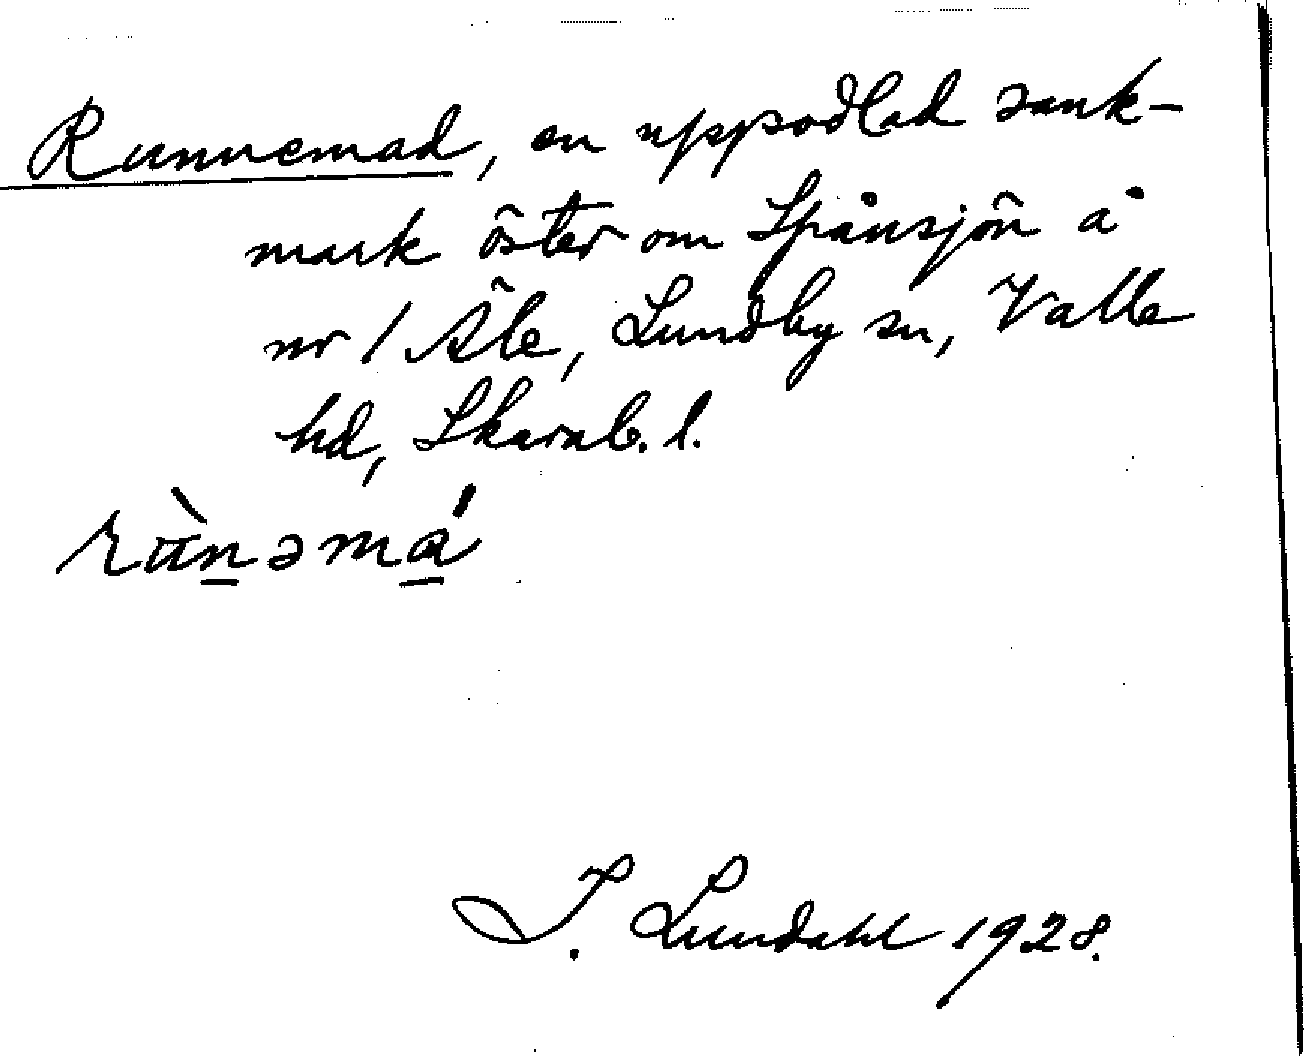 Runnemad, en uppodlad sank-
mark öster om Spånsjön å
nr 1 Åle, Lundby sn, Valle
hd, Skarab. l.
I. Lundahl 1928.